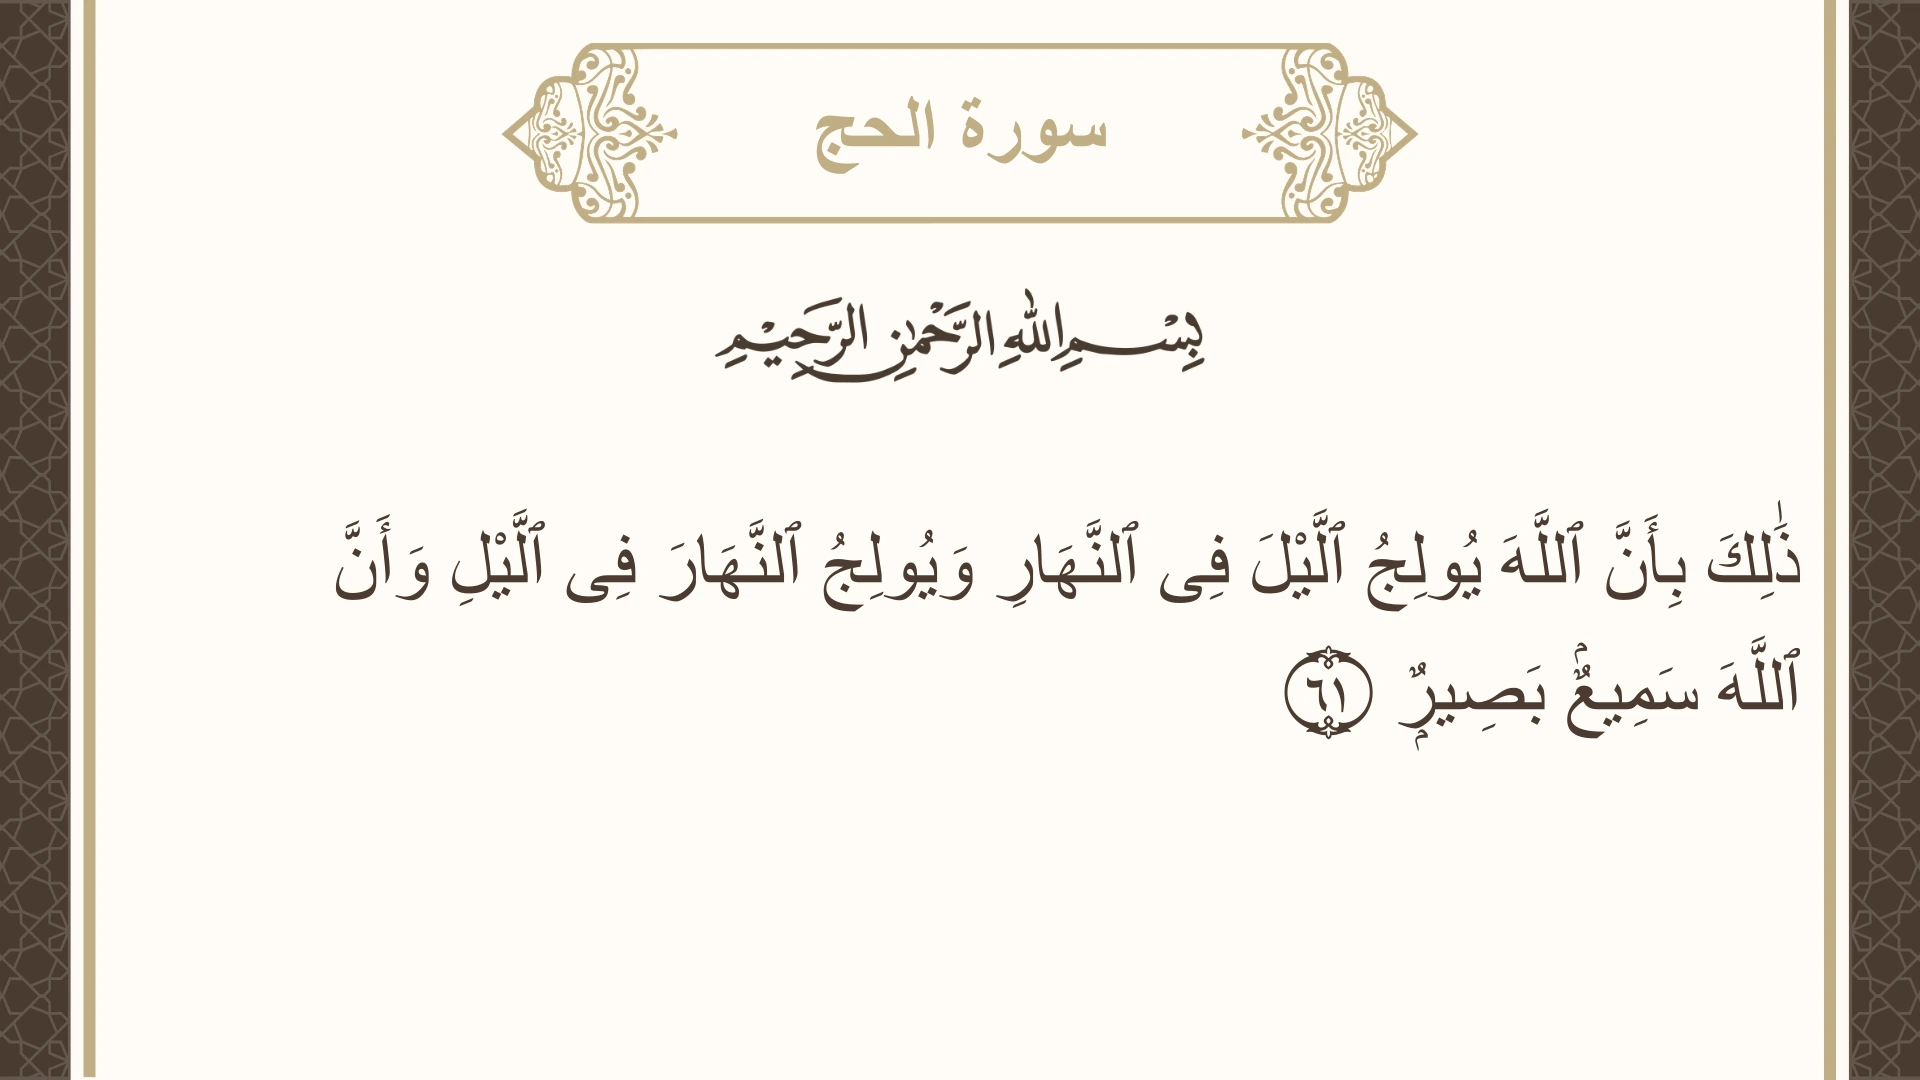 سورة الحج
بِسْمِ اللهِ الرَّحْمٰنِ الرَّحِيْمِ
ذَٰلِكَ بِأَنَّ ٱللَّهَ يُولِجُ ٱلَّيْلَ فِى ٱلنَّهَارِ وَيُولِجُ ٱلنَّهَارَ فِى ٱلَّيْلِ وَأَنَّ
ٱللَّهَ سَمِيعٌۢ بَصِيرٌۭ ۝٦١